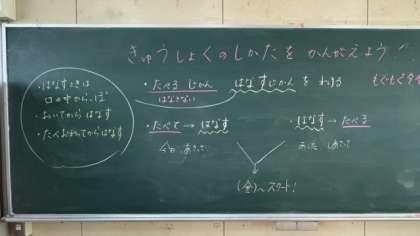 きゅうしょくのしかたを かんがえよう!
・はなすときは
口の中からっぽ
・おいてからはなす
・たべおわってからはなす
・たべる じかん はなすじかん を わける
はなさない
もぐもぐタ
・たべて → はなす
・はなす → たべる
(金)〜スタート!